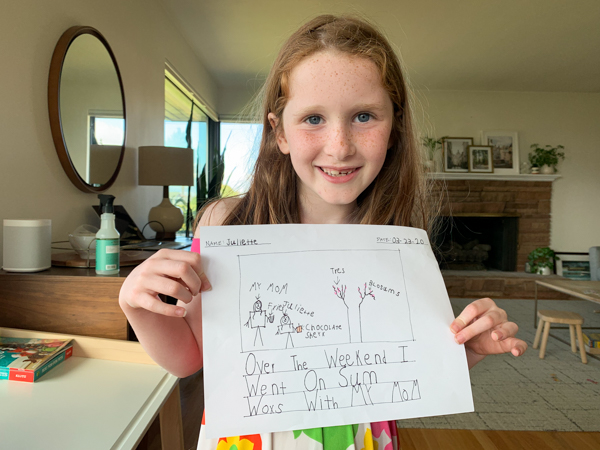 NAME: Juliette
DATE: 03-23-20
MY MOM
Fries
Juliette
CHOCOLATE
SHEYK
Tres
BLOSUMS
Over The Weekend I
Went On Sum
Woks With MY MoM